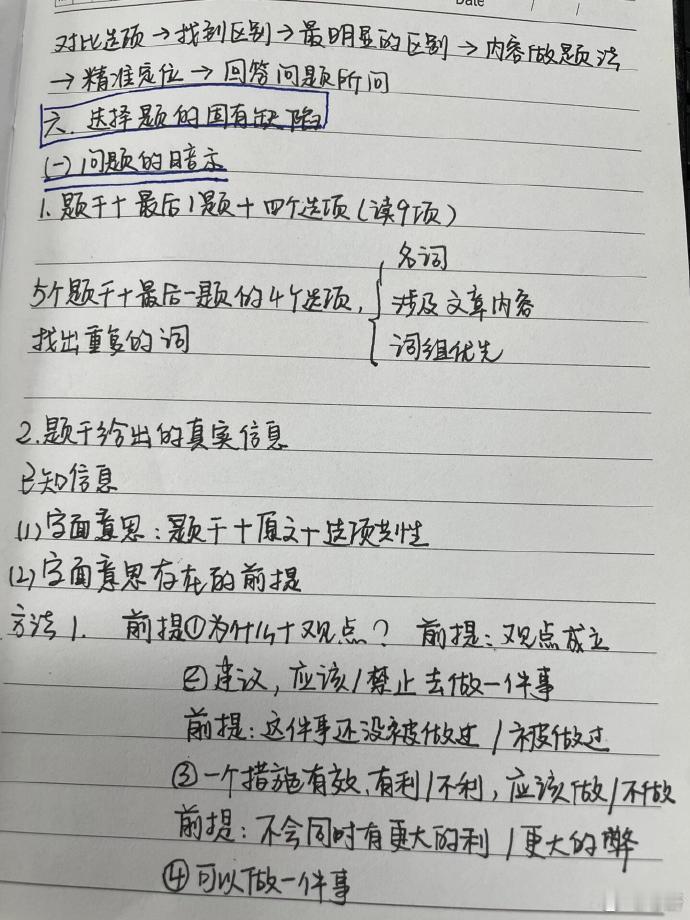 Date
对比选项→找到区别→最明显的区别→内容做题法
→精准定位→回答问题所问
六.选择题的固有缺陷
(一)问题的暗示
1.题干+最后1题+四个选项(读9项)
名词
5个题干+最后一题的4个选项,
涉及文章内容
找出重复的词
词组优先
2.题干给出的真实信息
已知信息
(1)字面意思:题干+原文+选项共性
(2)字面意思存在的前提
方法1. 前提①为什么+观点? 前提:观点成立
②建议,应该/禁止去做一件事
前提:这件事还没被做过/被做过
③一个措施有效、有利/不利,应该做/不做
前提:不会同时有更大的利/更大的弊
④可以做一件事